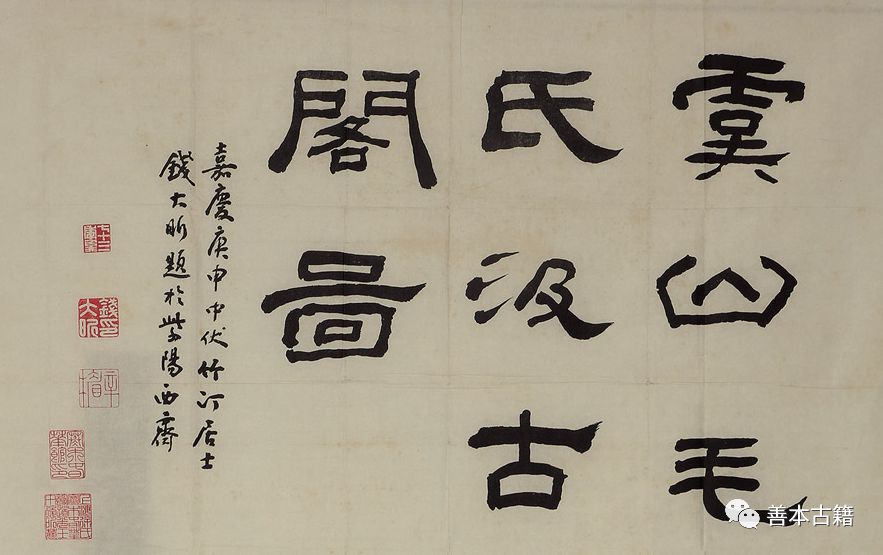 虞山毛
氏汲古
閣啚
嘉慶庚申中伏竹汀居士
錢大昕題於紫陽西齋
錢印大昕
善本古籍